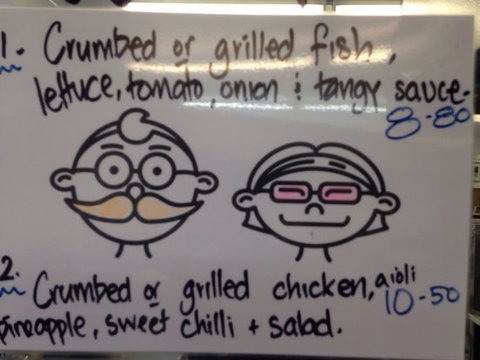 1. Crumbed or grilled fish,
lettuce, tomato, onion & tangy sauce.
8-80
2. Crumbed or grilled chicken, aioli
10-50
pineapple, sweet chilli + salad.